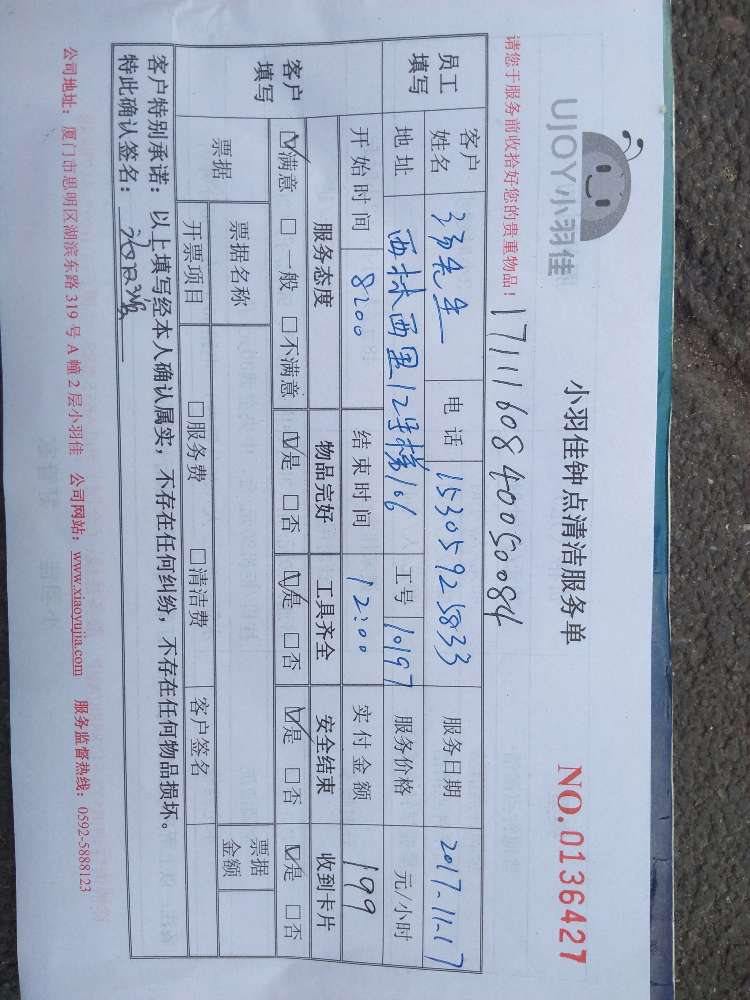 UJOY小羽佳
小羽佳钟点清洁服务单
NO.0136427
请您于服务前收拾好您的贵重物品！
1711160840050084
员工填写
客户姓名 先生 电话 15305925833 服务日期 2017-11-17
地址 西林西里12号梯106 工号 10197 服务价格 元/小时
开始时间 8:00 结束时间 12:00 实付金额 199
客户填写
服务态度 物品完好 工具齐全 安全结束 收到卡片
☑满意 □一般 □不满意 ☑是 □否 ☑是 □否 ☑是 □否 ☑是 □否
票据 票据名称 票据金额
开票项目 □服务费 □清洁费 客户签名
客户特别承诺：以上填写经本人确认属实，不存在任何纠纷，不存在任何物品损坏。
特此确认签名：
公司地址：厦门市思明区湖滨东路319号A幢2层小羽佳 公司网站：www.xiaoyujia.com 服务监督热线：0592-5888123